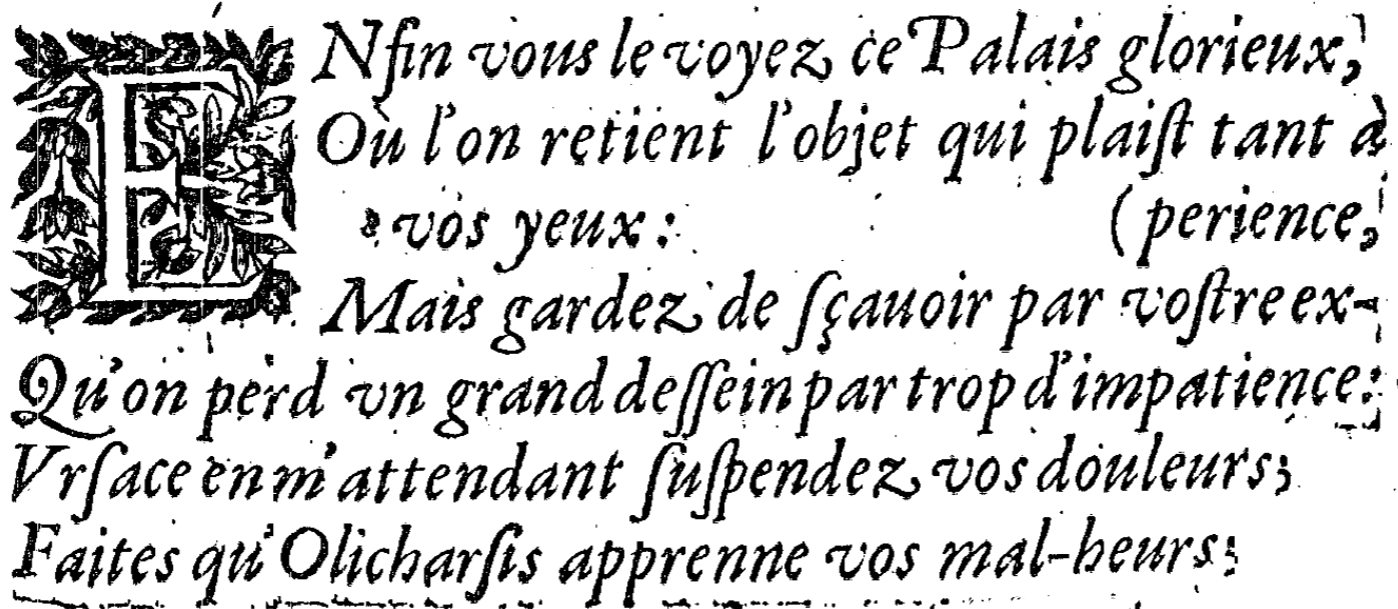 ENfin vous le voyez ce Palais glorieux,
Où l'on retient l'objet qui plaiſt tant à
vos yeux: (perience,
Mais gardez de ſçauoir par voſtre ex-
Qu'on perd vn grand deſſein par trop d'impatience:
Vrſace en m'attendant ſuſpendez vos douleurs;
Faites qu'Olicharſis apprenne vos mal-heurs;